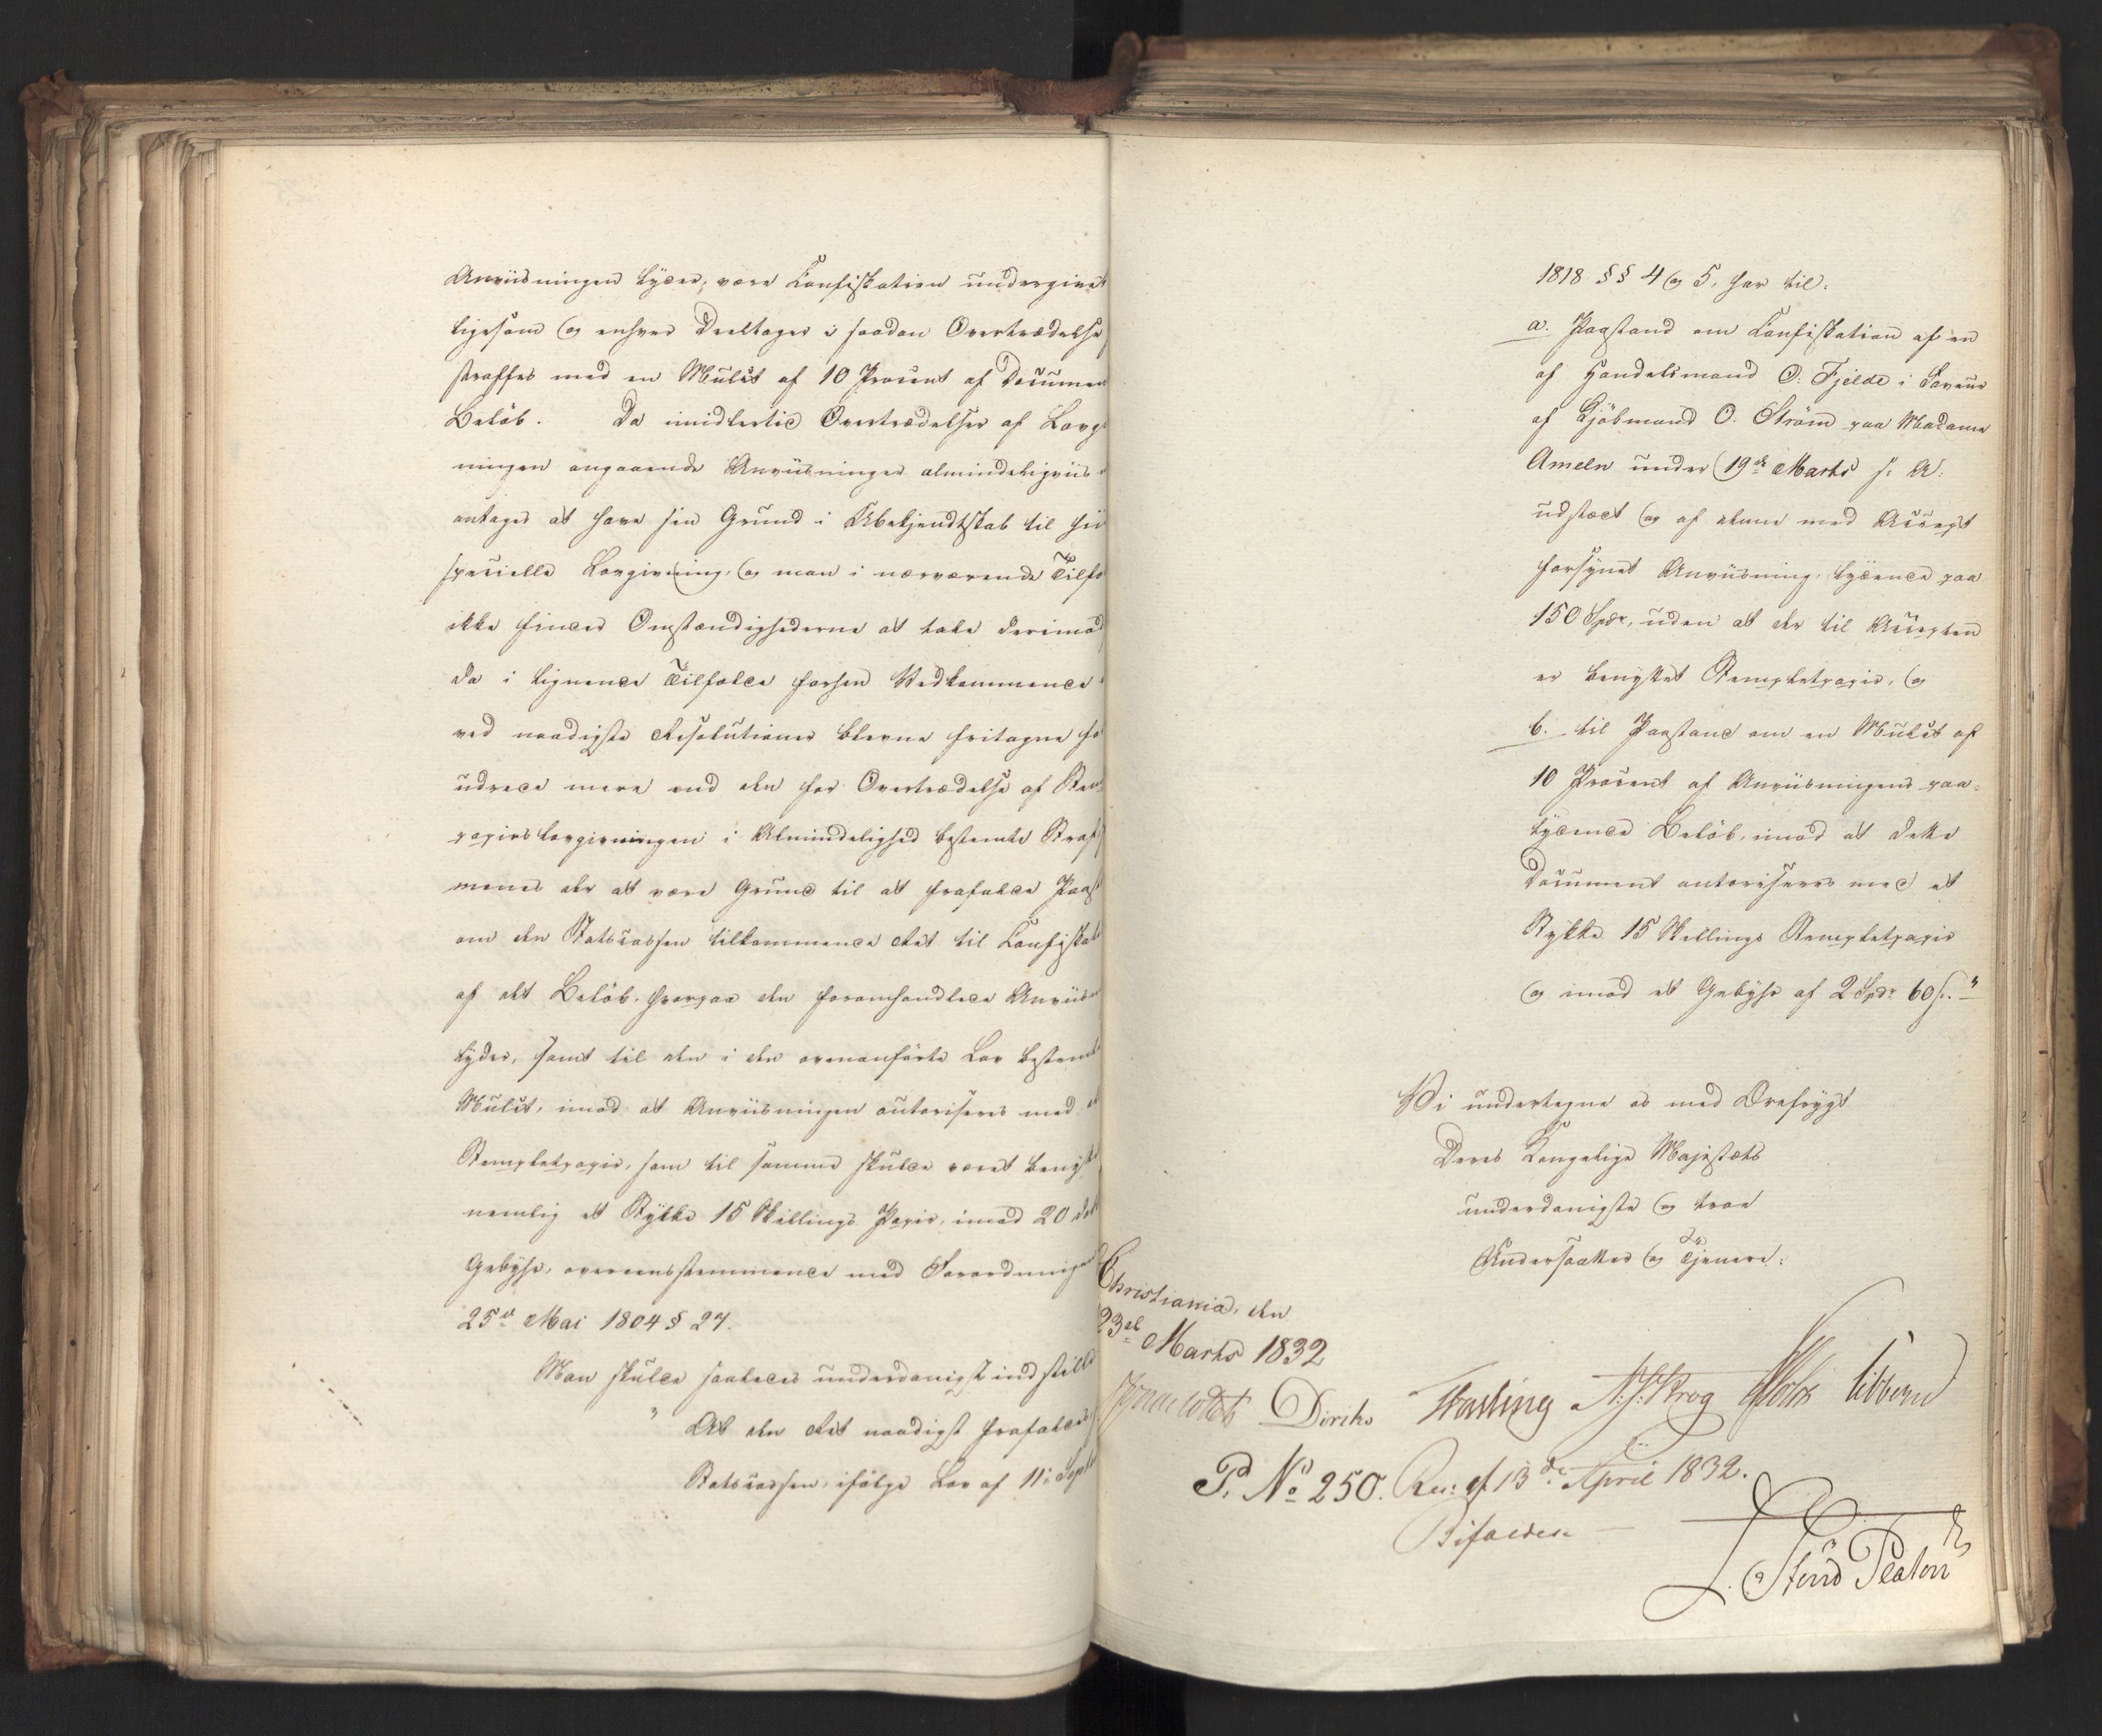 Anviisningen lyder, være Confiskation undergivet
ligesom og enhver Deeltager i saadan Overtrædelse
straffes med en Mulct af 10 Procent af Documen
Beløb. Da imidlertid Overtrædelser af Lovg
ningen angaaende Anviisninger almindeligviis
antages at have sin Grund i Ubekjendtskab til hiin
specielle Lovgivning, og man i nærværende Tilfæ
ikke finder Omstændighederne at tale derimod
da i lignende Tilfælde forhen Vedkommende
ved naadigste Resolutioner blevne fritagne for
udrede mere end den for Overtrædelse af Stem
papirslovgivningen i Almindelighed bestemte Straf
menes der at være Grund til at frafalde Paast
om den Statscassen tilkommende Ret til Confiskat
af det Beløb, hvorpaa den foromhandlede Anviisn
lyder, samt til den i den ovenanførte Lov bestemte
Mulct, imod at Anviisningen autoriseres med et
Stempletpapir, som til samme skulde været benyttet
nemlig et Stykke 15 Skillings Papir, imod 20 dob
Gebyhr, overeensstemmende med Forordningen
25de Mai 1804 § 27.
Man skulde saaledes underdanigst indstille
" At den Ret naadigst frafaldes
Statscassen, ifølge Lov af 11te Septb
1818 §§ 4 og 5, har til:
a. Paastand om Confiskation af en
af Handelsmand O: Fjelde i Faveur
af Kjøbmand O. Strøm paa Madame
Ameln under 19de Marts f. A:
udstædt og af denne med Accept
forsynet Anviisning, lydende paa
150 Spdr, uden at der til Accepten
er benyttet Stempletpapir, og
b. til Paastand om en Mulct af
10 Procent af Anviisningens paa-
lydende Beløb, imod at dette
Document autoriseres med et
Stykke 15 Skillings Stempletpapir
og imod et Gebyhr af 2 Spdr 60 s. "
Vi undertegne os med Ærefrygt
Deres Kongelige Majestæts
underdanigste og troe
Undersaatter og Tjenere:
Christiania, den
23de Marts 1832
Diriks Fasting N. J. Krog Holst Vibbern
P. No 250. Res: af 13de April 1832.
Bifaldes.